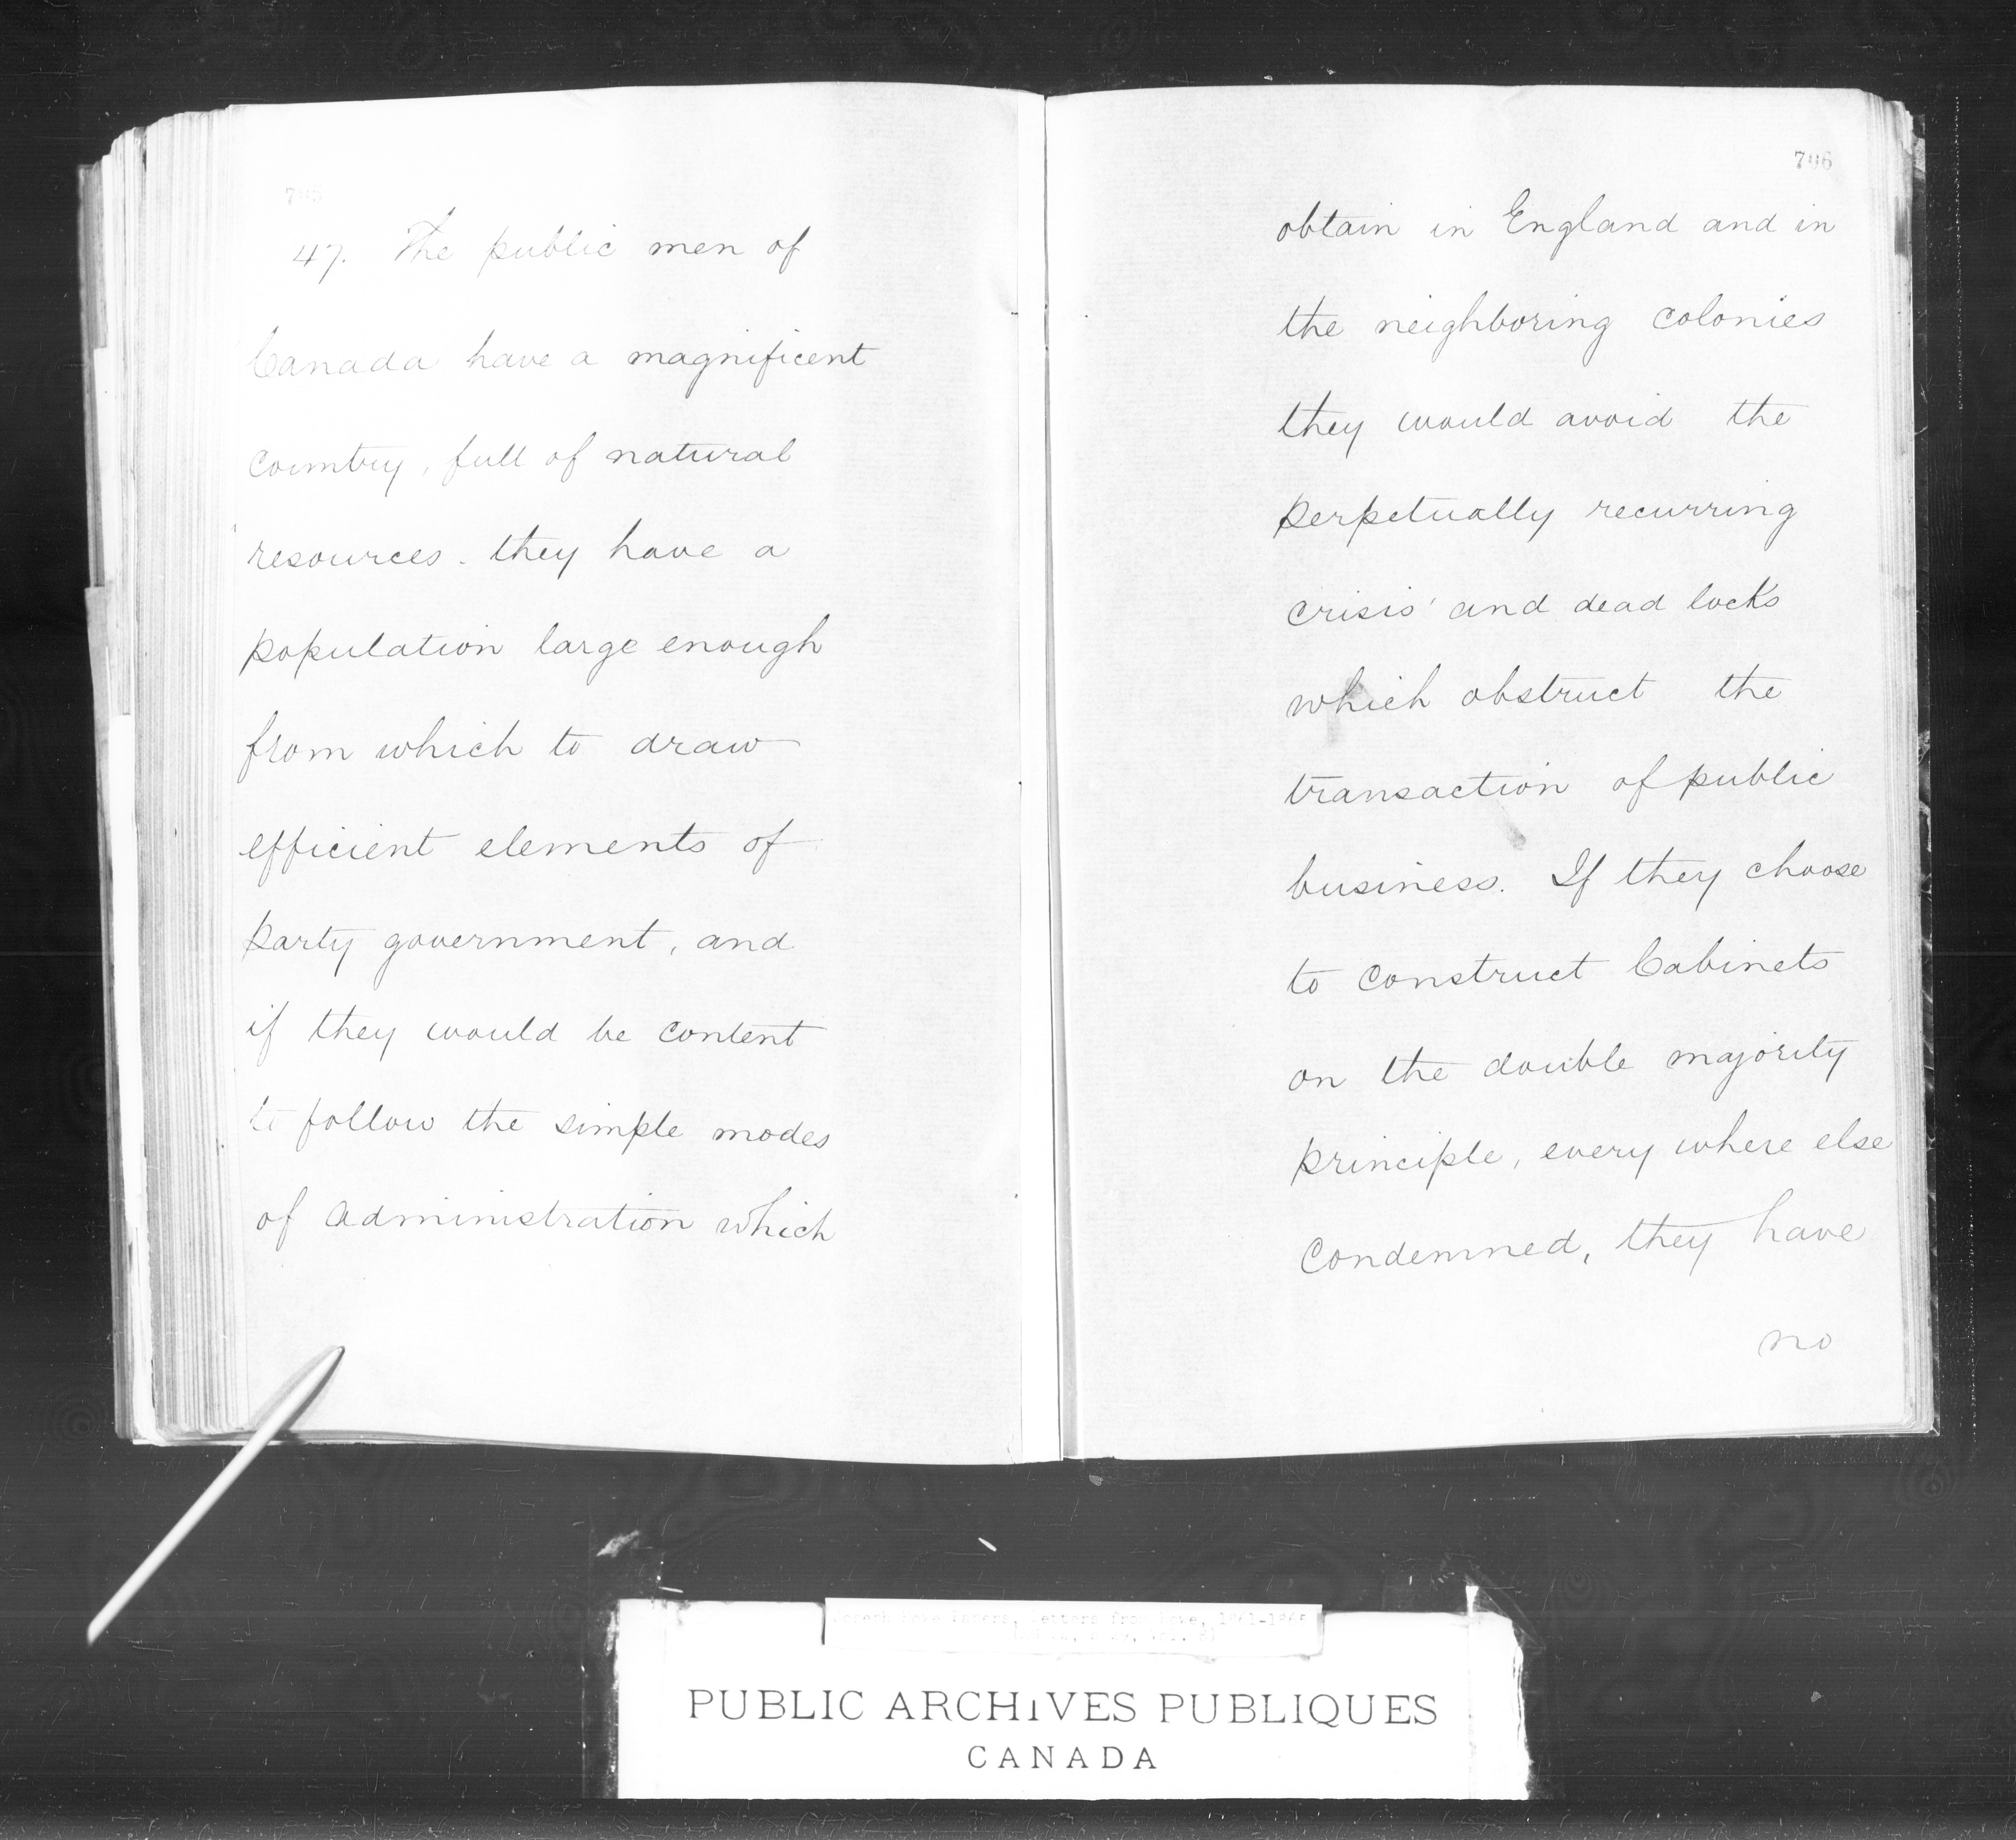 705
47. The public men of
Canada have a magnificent
country, full of natural
resources. they have a
population large enough
from which to draw
efficient elements of
party government, and
if they would be content
to follow the simple modes
of administration which
706
obtain in England and in
the neighboring colonies
they would avoid the
perpetually recurring
crisis' and dead locks
which obstruct the
transaction of public
business. If they choose
to construct Cabinets
on the double majority
principle, every where else
condemned, they have
no
Joseph Howe Papers, Letters from Howe, 1861-1865
PUBLIC ARCHIVES PUBLIQUES
CANADA